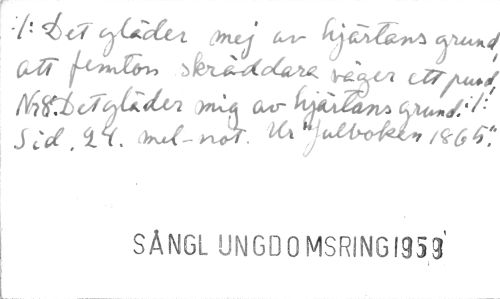 :/: Det gläder mej av hjärtans grund,
att femton skräddare väger ett pund,
Nr8. Det gläder mig av hjärtans grund. :/:
Sid. 24. mel-not. Ur "Julboken 1865".
SÅNGL UNGDOMSRING 1959